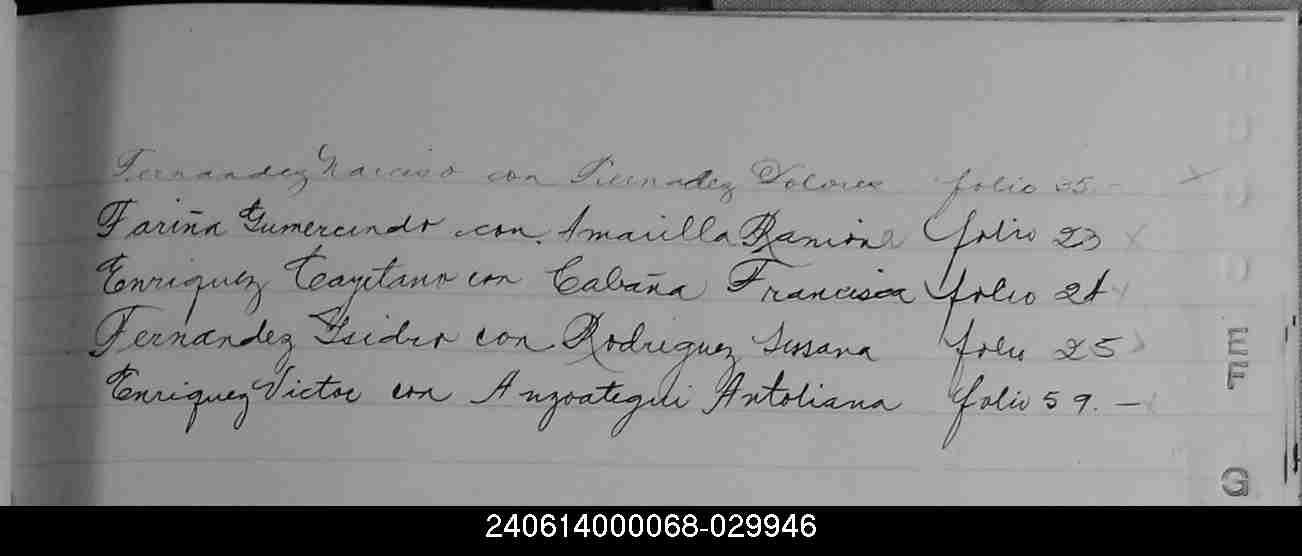 Fernandez Narciso con Piernadez Dolores folio 05.-
Fariña Gumercindo con Amarilla Ramona folio 23
Enriquez Cayetano con Cabaña Francisca folio 24
Fernandez Ysidro con Rodriguez Susana folio 25
Enriquez Victor con Anzoategui Antoliana folio 59.-
EF
G
240614000068-029946